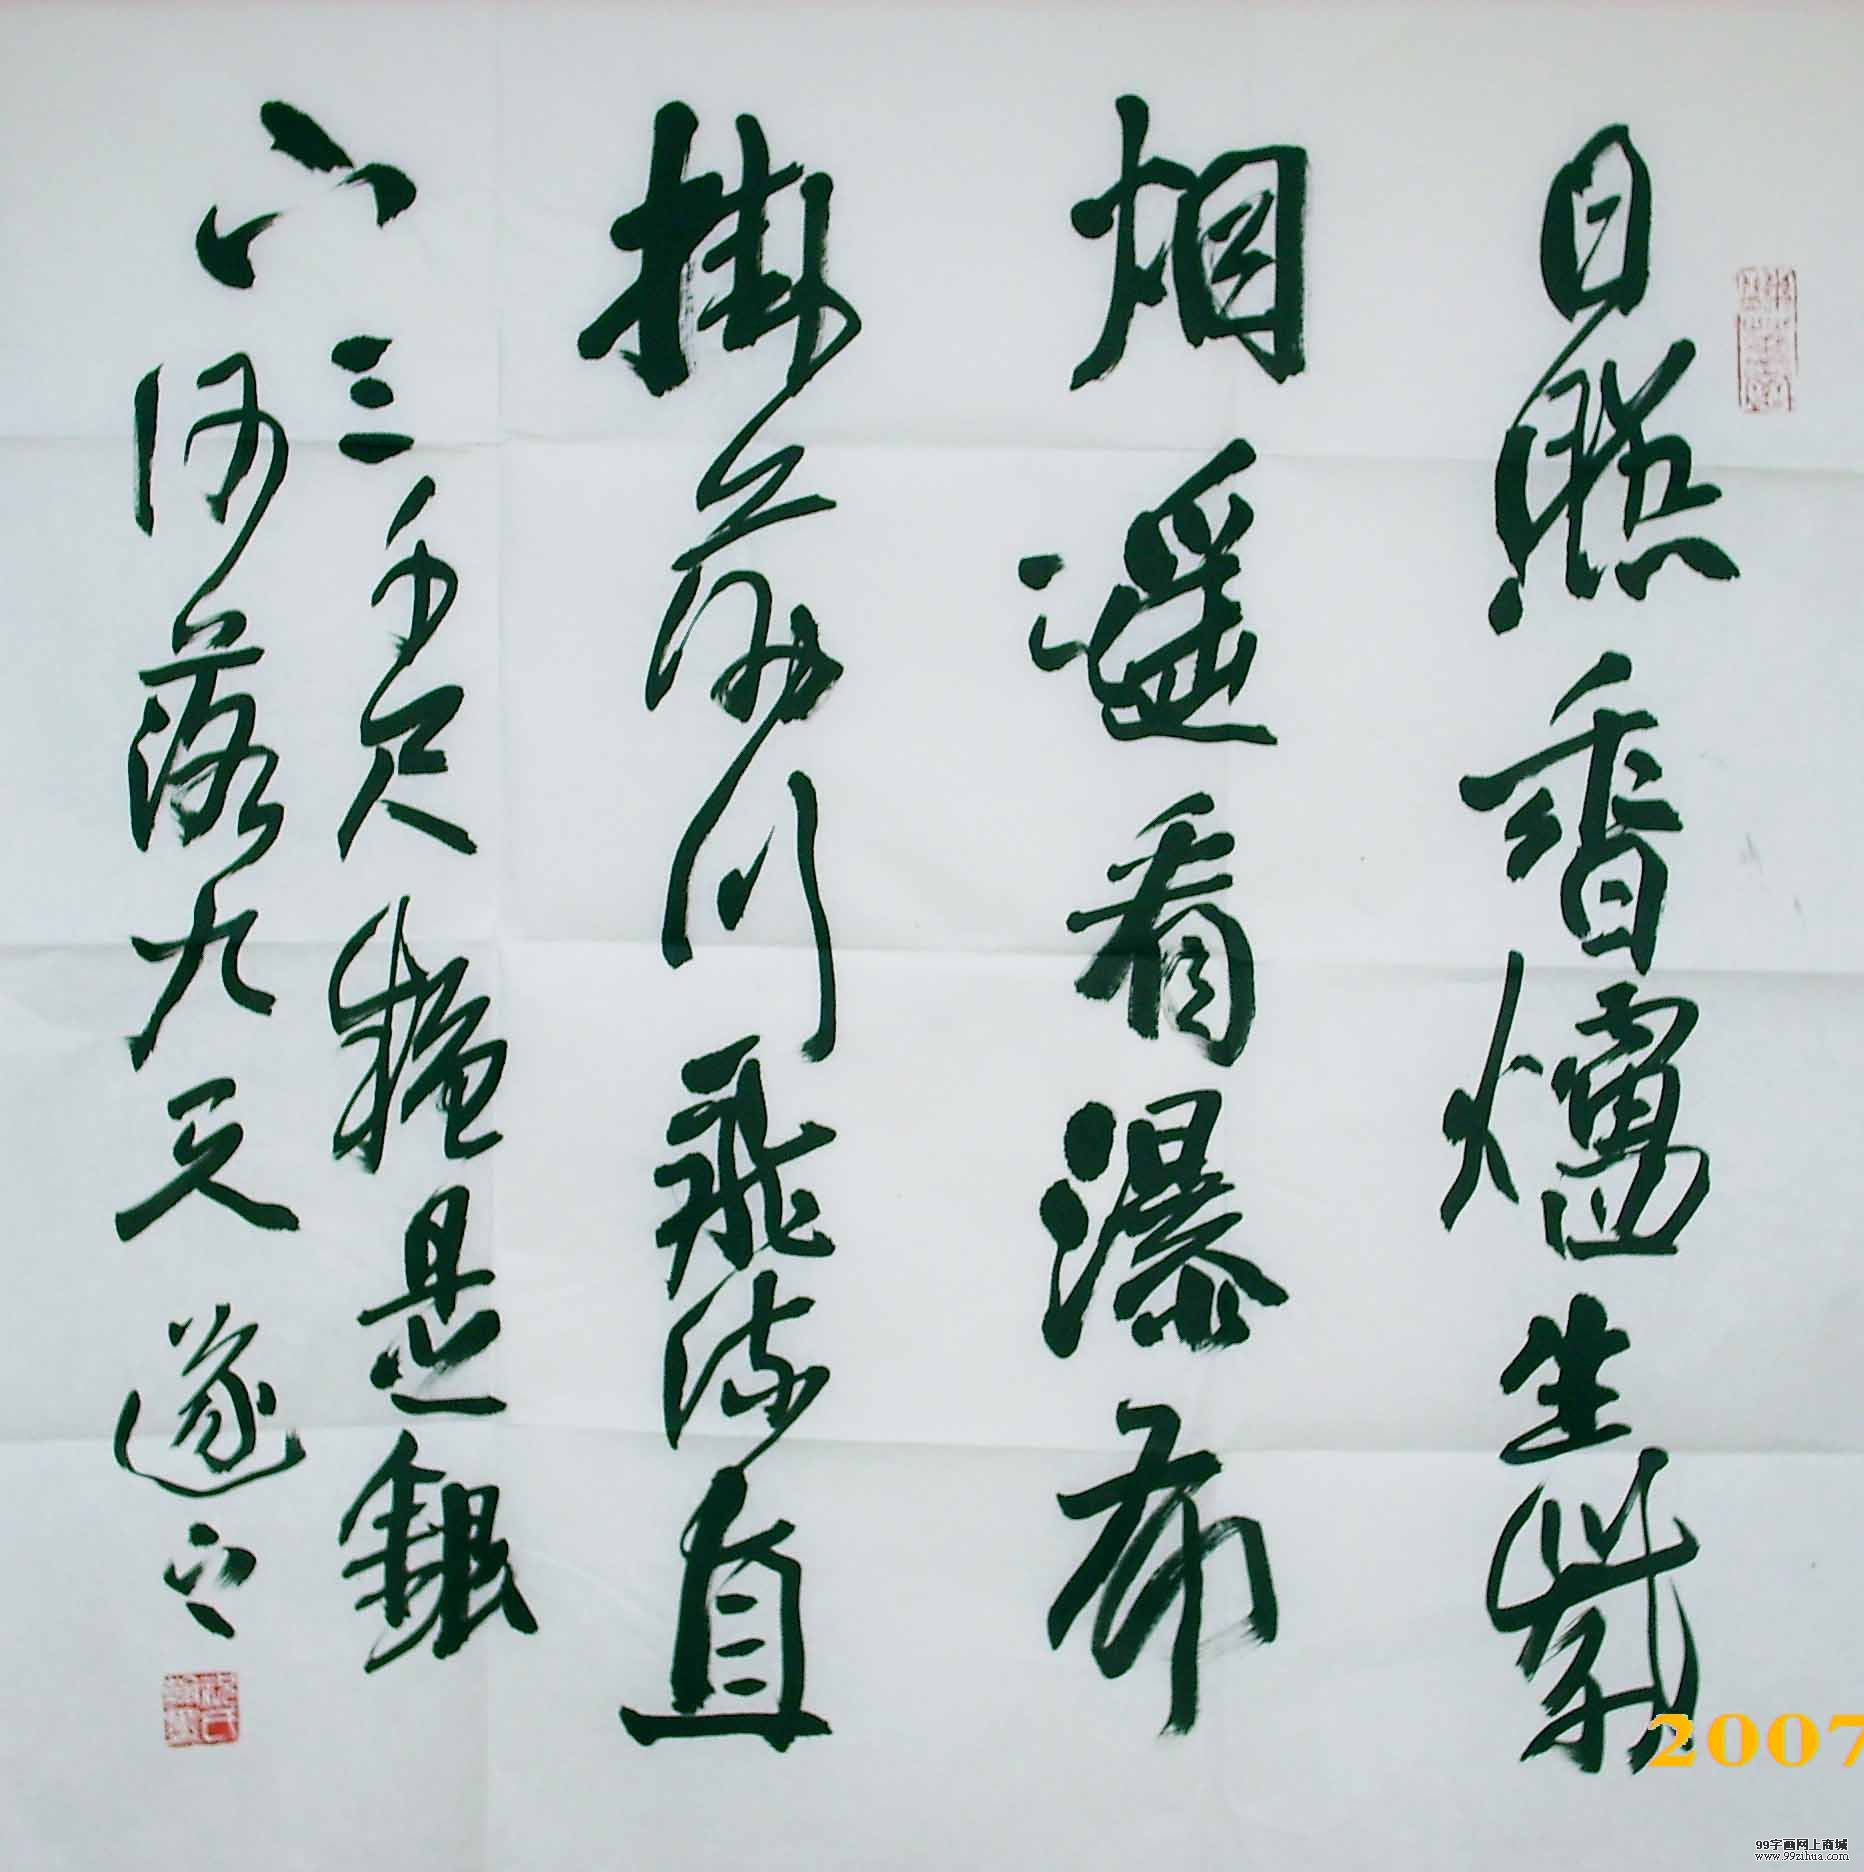 日照香爐生紫
烟遥看瀑布
掛前川飛流直
下三千尺疑是銀
河落九天 遂之
2007
99字画网上商城
www.99zihua.com